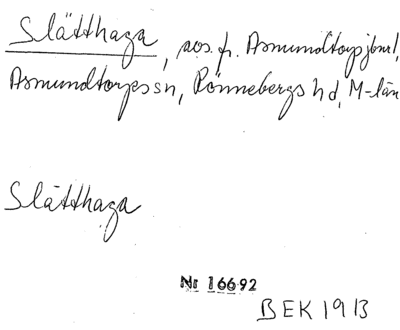 Slätthaga, aos. fr. Asmundtorps jbnr 1,
Asmundtorps sn, Rönnebergs hd, M-län
Slätthaga
Nr 16692
BEK 1913